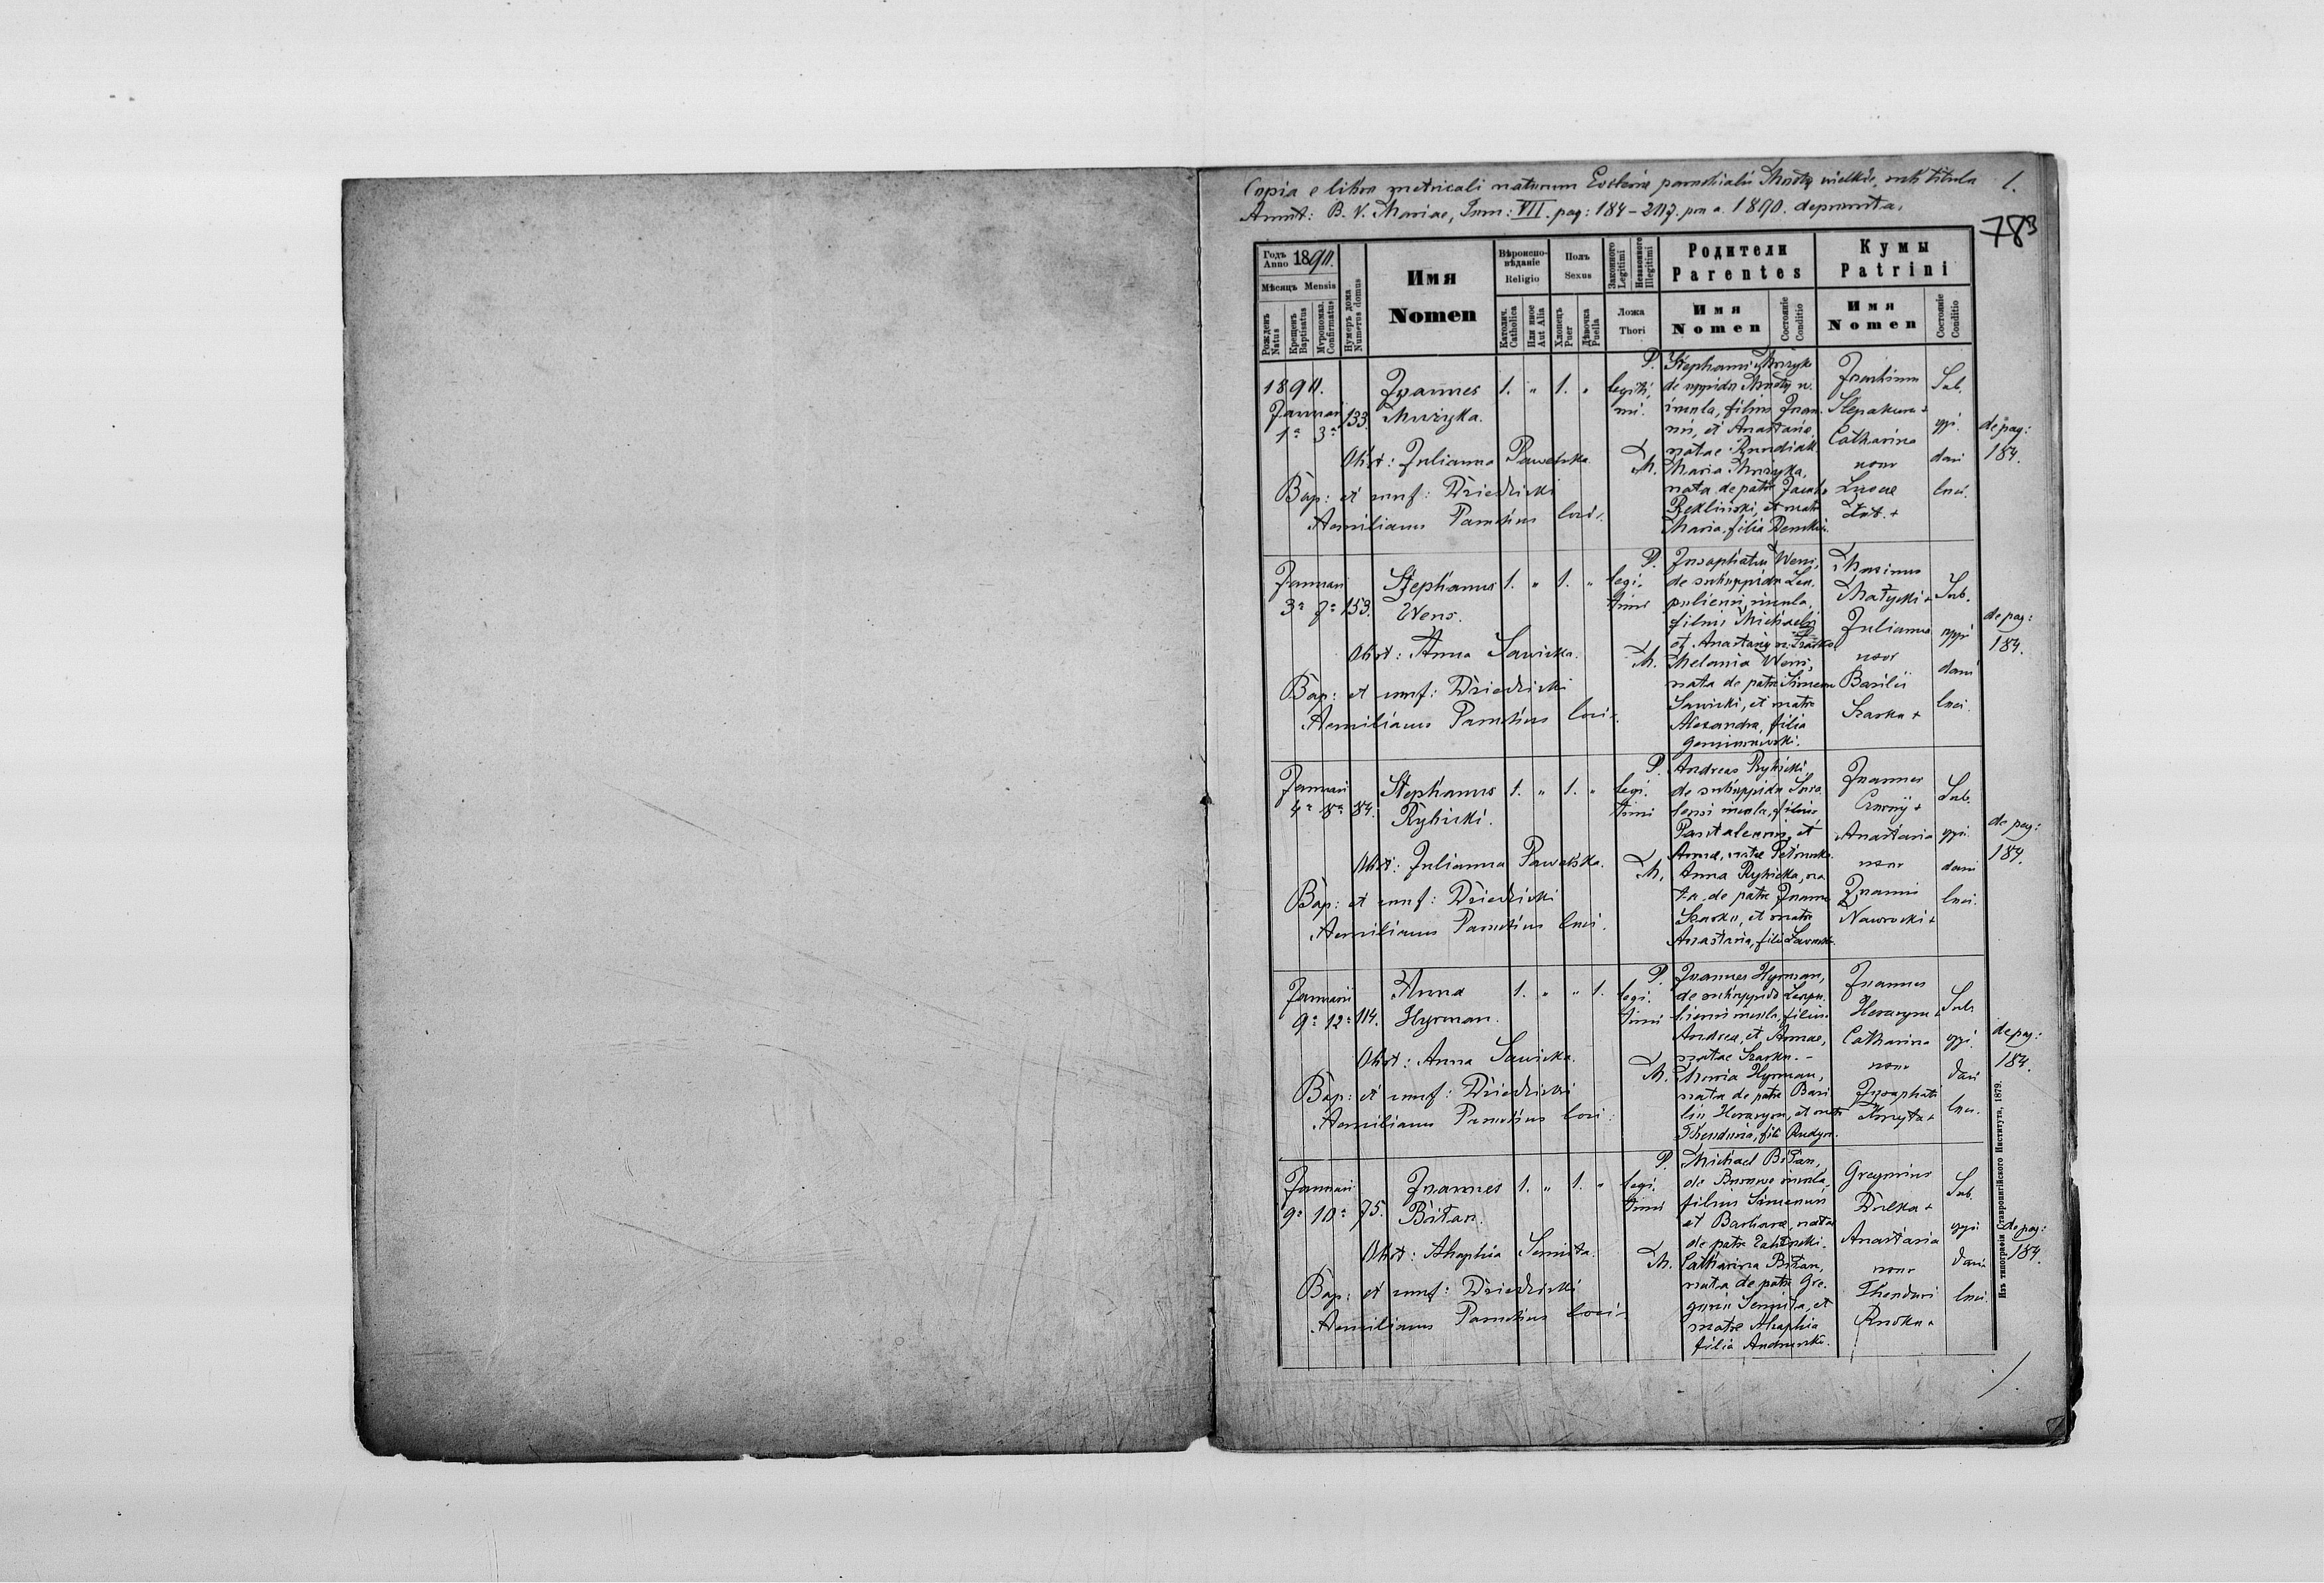 Copia e libro metricali natorum Ecclesiae parochialis Mosty wielkie, sub titulo 1.
Annunt: B. V. Mariae, Tom: VII. pag: 184-207. pro a. 1890. deprompta.
783
Годъ Anno 1890.
Мѣсяцъ Mensis
Рожденъ Natus
Крещенъ Baptisatus
Мѵропомаз. Confirmatus
Нумеръ дома Numerus domus
Имя
Nomen
Вѣроиспо-
вѣданіе
Religio
Католич. Catholica
Или иное Aut Alia
Полъ
Sexus
Хлопецъ Puer
Дѣвочка Puella
Законного Legitimi
Незаконного Illegitimi
Ложа
Thori
Родители
Parentes
Имя
Nomen
Состояніе Conditio
Кумы
Patrini
Имя
Nomen
Состояніе Conditio
1890.
Januari
1a 3a 133.
Joannes
Muzyka.
1. „ 1. „
legiti,
mi.
P. Stephanus Muzyka
de oppido Mosty w.
incola, filius Joan.
nis, et Anastasiae,
natae
M. Maria Muzyka,
nata de patre Jacobo
et matre
Maria, filia
Catharina
uxor
Lucae
Sub.
opi.
dani
loci.
de pag:
184.
Obst: Julianna Pawelska.
Bap: et conf: Dziedzicki
Aemilianus Parochus loci.
Januari
3a 7a 153.
Stephanus
Wens.
1. „ 1. „
legi.
timi
P. Josaphatus Wens,
de suboppido Leo.
poliensi, incola,
filius Michaelis
et Anastasiae n. Szarko
M. Melania Wens,
nata de patre Simeone
Sawicki, et matre
Alexandra, filia
Maximus
Matycki +
Julianna
uxor
Basilii
Szarka +
Sub.
oppi
dani
loci.
de pag:
184.
Obst: Anna Sawicka.
Bap: et conf: Dziedzicki
Aemilianus Parochus loci.
Januari
4a 8a 84.
Stephanus
Rybicki.
1. „ 1. „
legi.
timi
P. Andreas Rybicki
de suboppido
incola, filius
Pantaleonis, et
Annae, natae
M. Anna Rybicka, na
ta de patre Joanne
Szarko, et matre
Anastasia, filia
Joannes
Czornij +
Anastasia
uxor
Joannis
Nawrocki +
Sub.
opi.
dani
loci.
de pag:
184.
Obst: Julianna Pawelska.
Bap: et conf: Dziedzicki
Aemilianus Parochus loci.
Januarii
9a 12a 114.
Anna
Hyrman.
1. „ „ 1.
legi.
timi
P. Joannes Hyrman,
de suboppido Leopo.
liensi incola, filius
Andreae, et Annae,
natae Szarko. -
M. Maria Hyrman,
nata de patre Basi
lio Harasym, et matre
Theodosia, filia Rudyn.
Joannes
Harasym +
Catharina
uxor
Josaphati
Kmyta +
Sub
opi.
dani
loci.
de pag:
184.
Obst: Anna Sawicka.
Bap: et conf: Dziedzicki
Aemilianus Parochus loci.
Januari
9a 10a 75.
Joannes
Bitan.
1. „ 1. „
legi.
timi
P. Michael Bitan,
de incola,
filius Simeonis
et Barbarae, nata
de patre
M. Catharina Bitan,
nata de patre Gre.
gorio Semita, et
matre Ahaphia
filia
Gregorius
Anastasia
uxor
Theodori
Sub.
oppi
dani
loci.
de pag:
184.
Obst: Ahaphia Semita.
Bap: et conf: Dziedzicki
Aemilianus Parochus loci.
Изъ типографіи Ставропигійского Института, 1879.